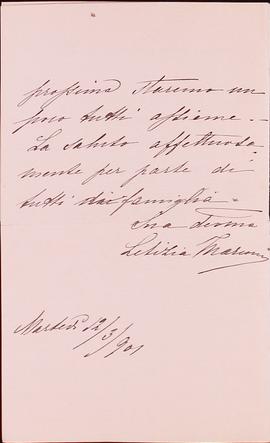 prossima staremo un
poco tutti assieme. -
La saluto affettuosa-
mente per parte di
tutti di famiglia -
Sua Devma
Letizia Marconi
Martedì 12/3/901